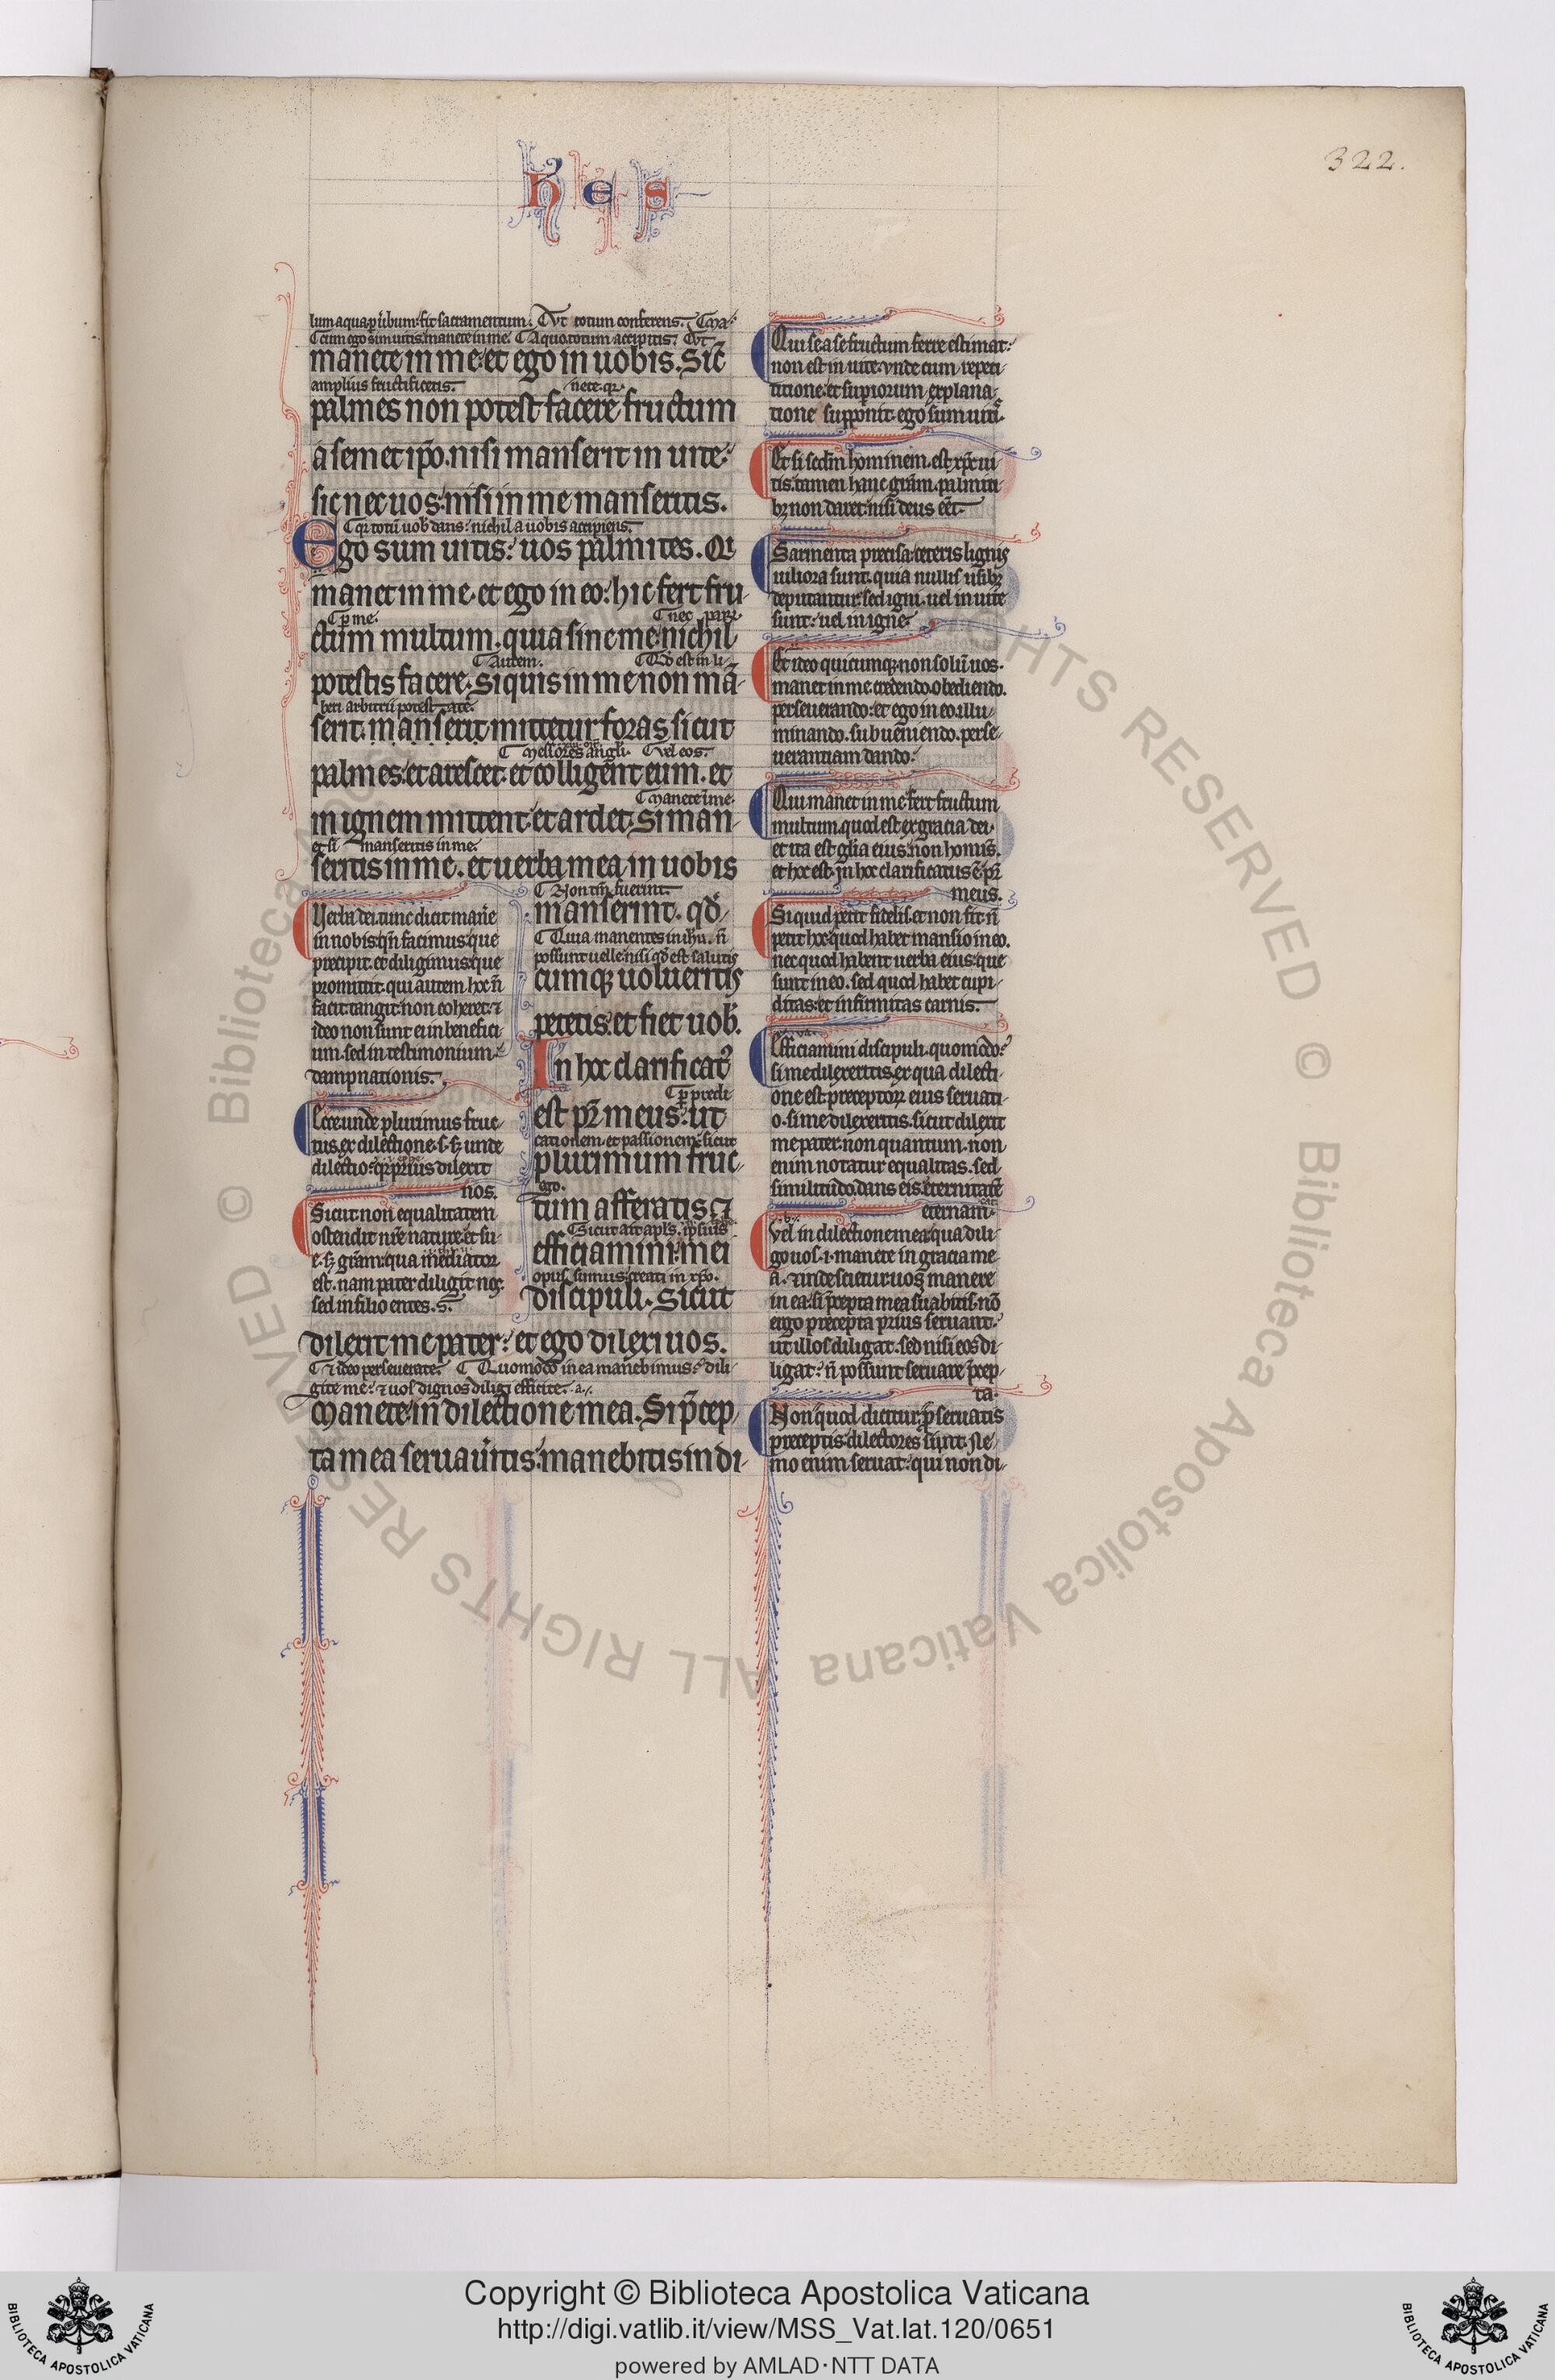 hes
322.
lum aqua per u̅bum: fit sacramentum. Vt totum conferens. Ma-
cum ego sim uitis: manete in me. A quo totum accipitis. Vt
manete in me: et ego in uobis. Sic̅
amplius fructificetis. nete. qr.
palmes non potest facere fructum
a semet ip̅o. nisi manserit in uite:
sic nec uos: nisi in me manseritis.
qr totu̅ uob̅ dans: nichil a uobis accipiens.
Ego sum uitis: uos palmites. Qi
manet in me. et ego in eo: hic fert fru-
p̱ me. nec paru̅
ctum multum. quia sine me nichil
autem. Qd̅ est in li-
potestis facere. Si quis in me non ma̅-
beri arbitrii potestate̅.
serit. manserit mittetur foras sicut
Messores angl̅i. uel eos.
palmes: et arescet. et colligent eum. et
Manete i̅ me.
in ignem mittent: et ardet. Si man-
et si manseritis in me.
seritis in me. et uerba mea in uobis
Non tm̅ fuerint
manserint. qd̅-
Quia manentes in ih̅u. n̅
possunt uelle nisi qd̅ est salutis
cumq; uolueritis
petetis: et fiet uob̅.
In hoc clarificat᷒
p̱ predi-
est pr̅ meus: ut
cationem. et passionem: sicut
plurimum fruc-
ego.
tum afferatis ⁊
Sicut ait apl̅s. ip̅sius
efficiamini: mei
opus sumus: creati in xp̅o.
discipuli. Sicut
Verba dei tunc dicit mane̅
in nobis: qn̅ facimus que
precipit. et diligimus: que
promittit. qui autem hoc n̅
facit: tangit: non coheret. ⁊
ideo non sunt ei in benefici-
um. sed in testimonium
dampnationis.
Ecce unde plurimus fruc-
tus. ex dilectione. s. sʒ unde
dilectio: qr prius dilexit
nos.
Sicut non equalitatem
ostendit nr̅e nature. et su-
e. sʒ gr̅am: qua mediator
est. nam pater diligit nos:
sed in filio entes. s.
dilexit me pater: et ego dilexi uos.
⁊ ideo perseuerate. Quomodo in ea manebimus: dili-
gite me: ⁊ uos dignos diligi efficite. a.
Manete in dilectione mea. Si p̅cep-
ta mea seruau̅itis: manebitis in di-
Qui se a se fructum ferre estimat:
non est in uite. vnde cum repeti-
titione. et sup̱iorum explana-
tione supponit. ego sum uitis.
Et si scd̅m hominem. est xp̅c ui-
tis. tamen hanc gr̅am. palmiti-
bʒ non daret: nisi deus ee̅t.
Sarmenta precisa: ceteris lignis
uiliora sunt. quia nullis usibʒ
deputantur: sed igni. uel in uite
sunt: uel in igne.
Et ideo quicumq; non solu̅ uos.
manet in me. credendo. obediendo.
perseuerando: et ego in eo. illu-
minando. subueniendo. perse-
uerantiam dando:
Qui manet in me fert fructum
multum. quod est ex gracia dei.
et ita est glr̅ia eius: non homis̅.
et hoc est. in hoc clarificatus e̅ pr̅
meus.
Si quid petit fidelis. et non fit: n̅
petit hoc quod habet mansio in eo.
nec quod habent uerba eius: que
sunt in eo. sed quod habet cupi-
ditas: et infirmitas carnis.
Efficiamini discipuli. quomodo?
si me dilexeritis. ex qua dilecti-
one est preceptorꝝ eius seruati-
o. si me dilexeritis. sicut dilexit
me pater. non quantum. non
enim notatur equalitas. sed
similitudo. dans eis. eternitate̅
eternam.
Vel in dilectione mea: qua dili-
go uos. i. manete in gracia me-
a. ⁊ inde scietur: uos manere
in ea: si p̅cepta mea suabitis. no̅
ergo precepta prius seruant:
ut illos diligat. sed nisi eos di-
ligat: n̅ possunt seruare p̅cep-
ta.
Non quod dicitur, p̱ seruatis
preceptis: dilectores sunt. Ne-
mo enim seruat: qui non di-
Copyright © Biblioteca Apostolica Vaticana
http://digi.vatlib.it/view/MSS_Vat.lat.120/0651
powered by AMLAD·NTT DATA
BIBLIOTECA APOSTOLICA VATICANA
BIBLIOTECA APOSTOLICA VATICANA
© Biblioteca Apostolica Vaticana ALL RIGHTS RESERVED